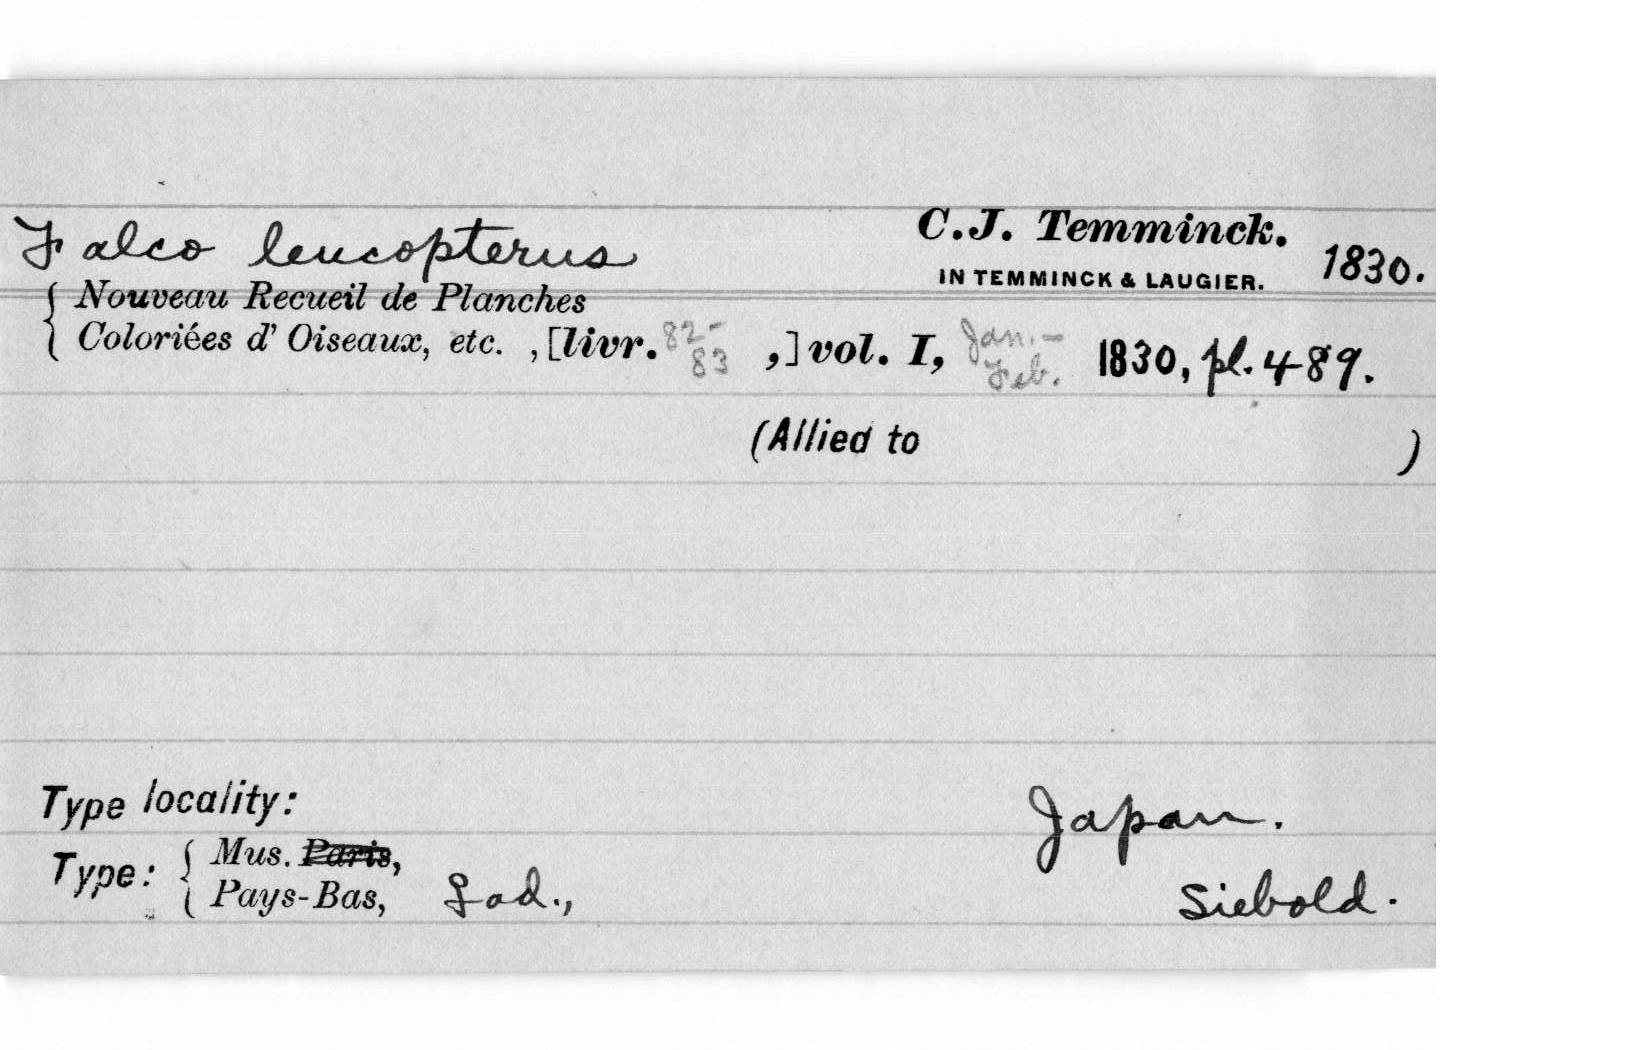 Falco leucopterus C.J. Temminck.
IN TEMMINCK & LAUGIER. 1830.
{ Nouveau Recueil de Planches
Coloriées d' Oiseaux, etc. , [livr. 82-83 ,] vol. I, Jan.-Feb. 1830, pl. 489.
(Allied to )
Type locality: Japan.
Type: { Mus. Paris,
Pays-Bas, Siebold.